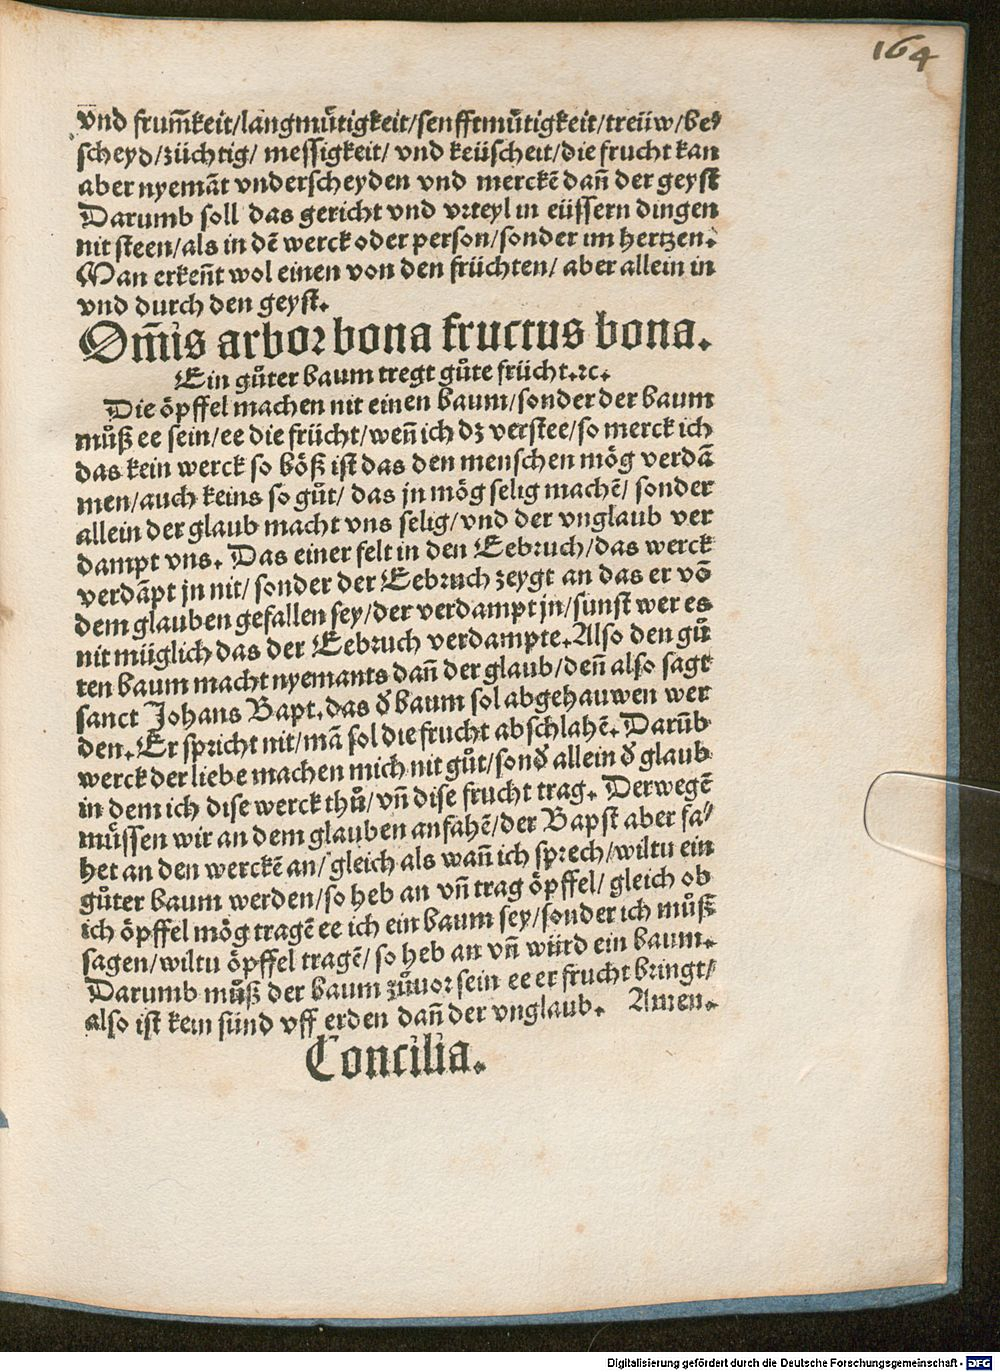 164
vnd frum̃keit/langmuͤtigkeit/senfftmuͤtigkeit/treüw/be⸗
scheyd/züchtig/ messigkeit/ vnd keüscheit/die frucht kan
aber nyemãt vnderscheyden vnd merckẽ dañ der geyst
Darumb soll das gericht vnd vꝛteyl in eüssern dingen
nit steen/als in dẽ werck oder person/sonder im hertzen.
Man erkeñt wol einen von den früchten/ aber allein in
vnd durch den geyst.
Om̃is arboꝛ bona fructus bona.
Ein guͦter baum tregt guͦte frücht.ꝛc.
Die öpffel machen nit einen baum/sonder der baum
muͦß ee sein/ee die frücht/weñ ich dz verstee/so merck ich
das kein werck so böß ist das den menschen mög verdã
men/auch keins so guͦt/ das jn mög selig machẽ/ sonder
allein der glaub macht vns selig/vnd der vnglaub ver
dampt vns. Das einer felt in den Eebꝛuch/das werck
verdãpt jn nit/ sonder der Eebꝛuch zeygt an das er võ
dem glauben gefallen sey/der verdampt jn/sunst wer es
nit müglich das der Eebꝛuch verdampte.Also den guͦ
ten baum macht nyemants dañ der glaub/deñ also sagt
sanct Johans Bapt.das d̛ baum sol abgehauwen wer
den.Er spꝛicht nit/mã sol die frucht abschlahẽ.Darũb
werck der liebe machen mich nit guͦt/sond̛ allein d̛ glaub
in dem ich dise werck thuͦ/vñ dise frucht trag. Derwegẽ
muͤssen wir an dem glauben anfahẽ/der Bapst aber fa⸗
het an den werckẽ an/gleich als wañ ich spꝛech/wiltu ein
guͦter baum werden/so heb an vñ trag öpffel/ gleich ob
ich öpffel mög tragẽ ee ich ein baum sey/sonder ich muͦß
sagen/wiltu öpffel tragẽ/ so heb an vñ würd ein baum.
Darumb muͦß der baum zuͦuoꝛ sein ee er frucht bringt/
also ist kein sünd vff erden dañ der vnglaub. Amen.
Concilia.
Digitalisierung gefördert durch die Deutsche Forschungsgemeinschaft - DFG